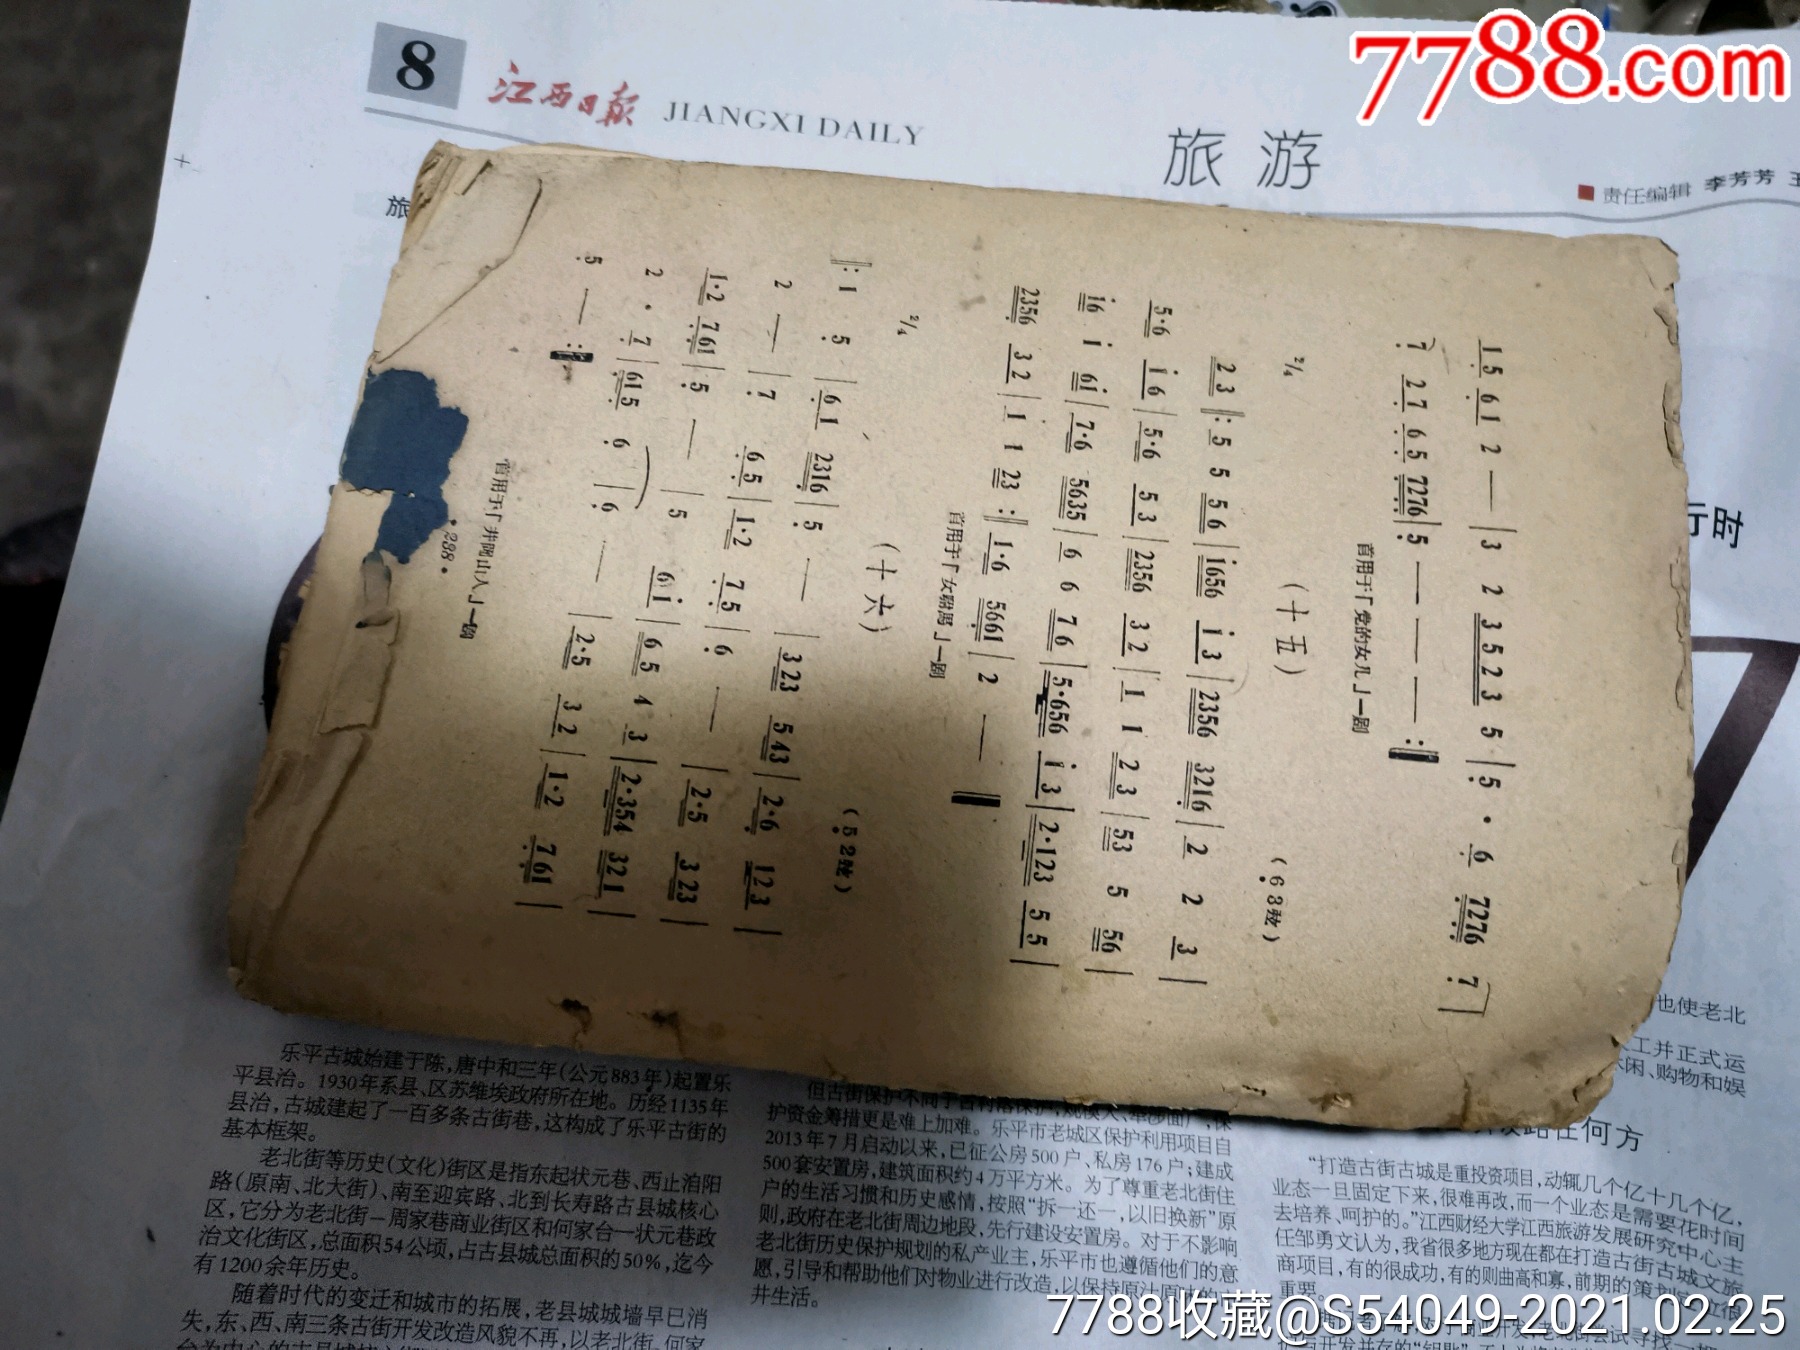 7788.com
8 江西日报 JIANGXI DAILY
旅游
责任编辑 李芳芳
旅
行时
1 5 6 1 2 — | 3 2 3 5 2 3 5 | 5 · 6 7276 7 |
7 2 7 6 5 7276 | 5 — — — :‖
首用于「党的女儿」一剧
(十五)
2/4
(6 3弦)
2 3 ‖: 5 5 5 6 | 1656 1 3 | 2356 3216 | 2 2 3 |
5·6 1 6 | 5·6 5 3 | 2356 3 2 | 1 1 2 3 | 53 5 56 |
16 1 61 | 7·6 5635 | 6 6 7 6 | 5·656 1 3 | 2·123 5 5 |
2356 3 2 | 1 1 23 :‖ 1·6 5661 | 2 — ‖
首用于「女驸马」一剧
(十六)
2/4
(5 2弦)
‖: 1 5 | 6 1 2316 | 5 — | 323 5 43 | 2·6 1 2 3 |
2 — | 7 6 5 | 1·2 7 5 | 6 — | 2·5 3 23 |
1·2 7 61 | 5 — | 5 6 1 | 6 5 4 3 | 2·354 321 |
2 · 7 | 615 6 | 6 — | 2·5 3 2 | 1·2 7 61 |
5 — :‖
首用于「井岡山人」一剧
·288·
也使老北
工并正式运
休闲、购物和娱
路在何方
乐平古城始建于陈,唐中和三年(公元883年)起置乐
平县治。1930年系县、区苏维埃政府所在地。历经1135年
县治,古城建起了一百多条古街巷,这构成了乐平古街的
基本框架。
老北街等历史(文化)街区是指东起状元巷、西止泊阳
路(原南、北大街)、南至迎宾路、北到长寿路古县城核心
区,它分为老北街—周家巷商业街区和何家台—状元巷政
治文化街区,总面积54公顷,占古县城总面积的50%,迄今
有1200余年历史。
随着时代的变迁和城市的拓展,老县城城墙早已消
失,东、西、南三条古街开发改造风貌不再,以老北街、何家
护资金筹措更是难上加难。乐平市老城区保护利用项目自
2013年7月启动以来,已征公房500户、私房176户;建成
500套安置房,建筑面积约4万平方米。为了尊重老北街住
户的生活习惯和历史感情,按照“拆一还一,以旧换新”原
则,政府在老北街周边地段,先行建设安置房。对于不影响
老北街历史保护规划的私产业主,乐平市也遵循他们的意
愿,引导和帮助他们对物业进行改造,以保持原汁原味的
井生活。
“打造古街古城是重投资项目,动辄几个亿十几个亿,
业态一旦固定下来,很难再改,而一个业态是需要花时间
去培养、呵护的。”江西财经大学江西旅游发展研究中心主
任邹勇文认为,我省很多地方现在都在打造古街古城文旅
商项目,有的很成功,有的则曲高和寡,前期的策划
重要。
7788收藏@S54049-2021.02.25